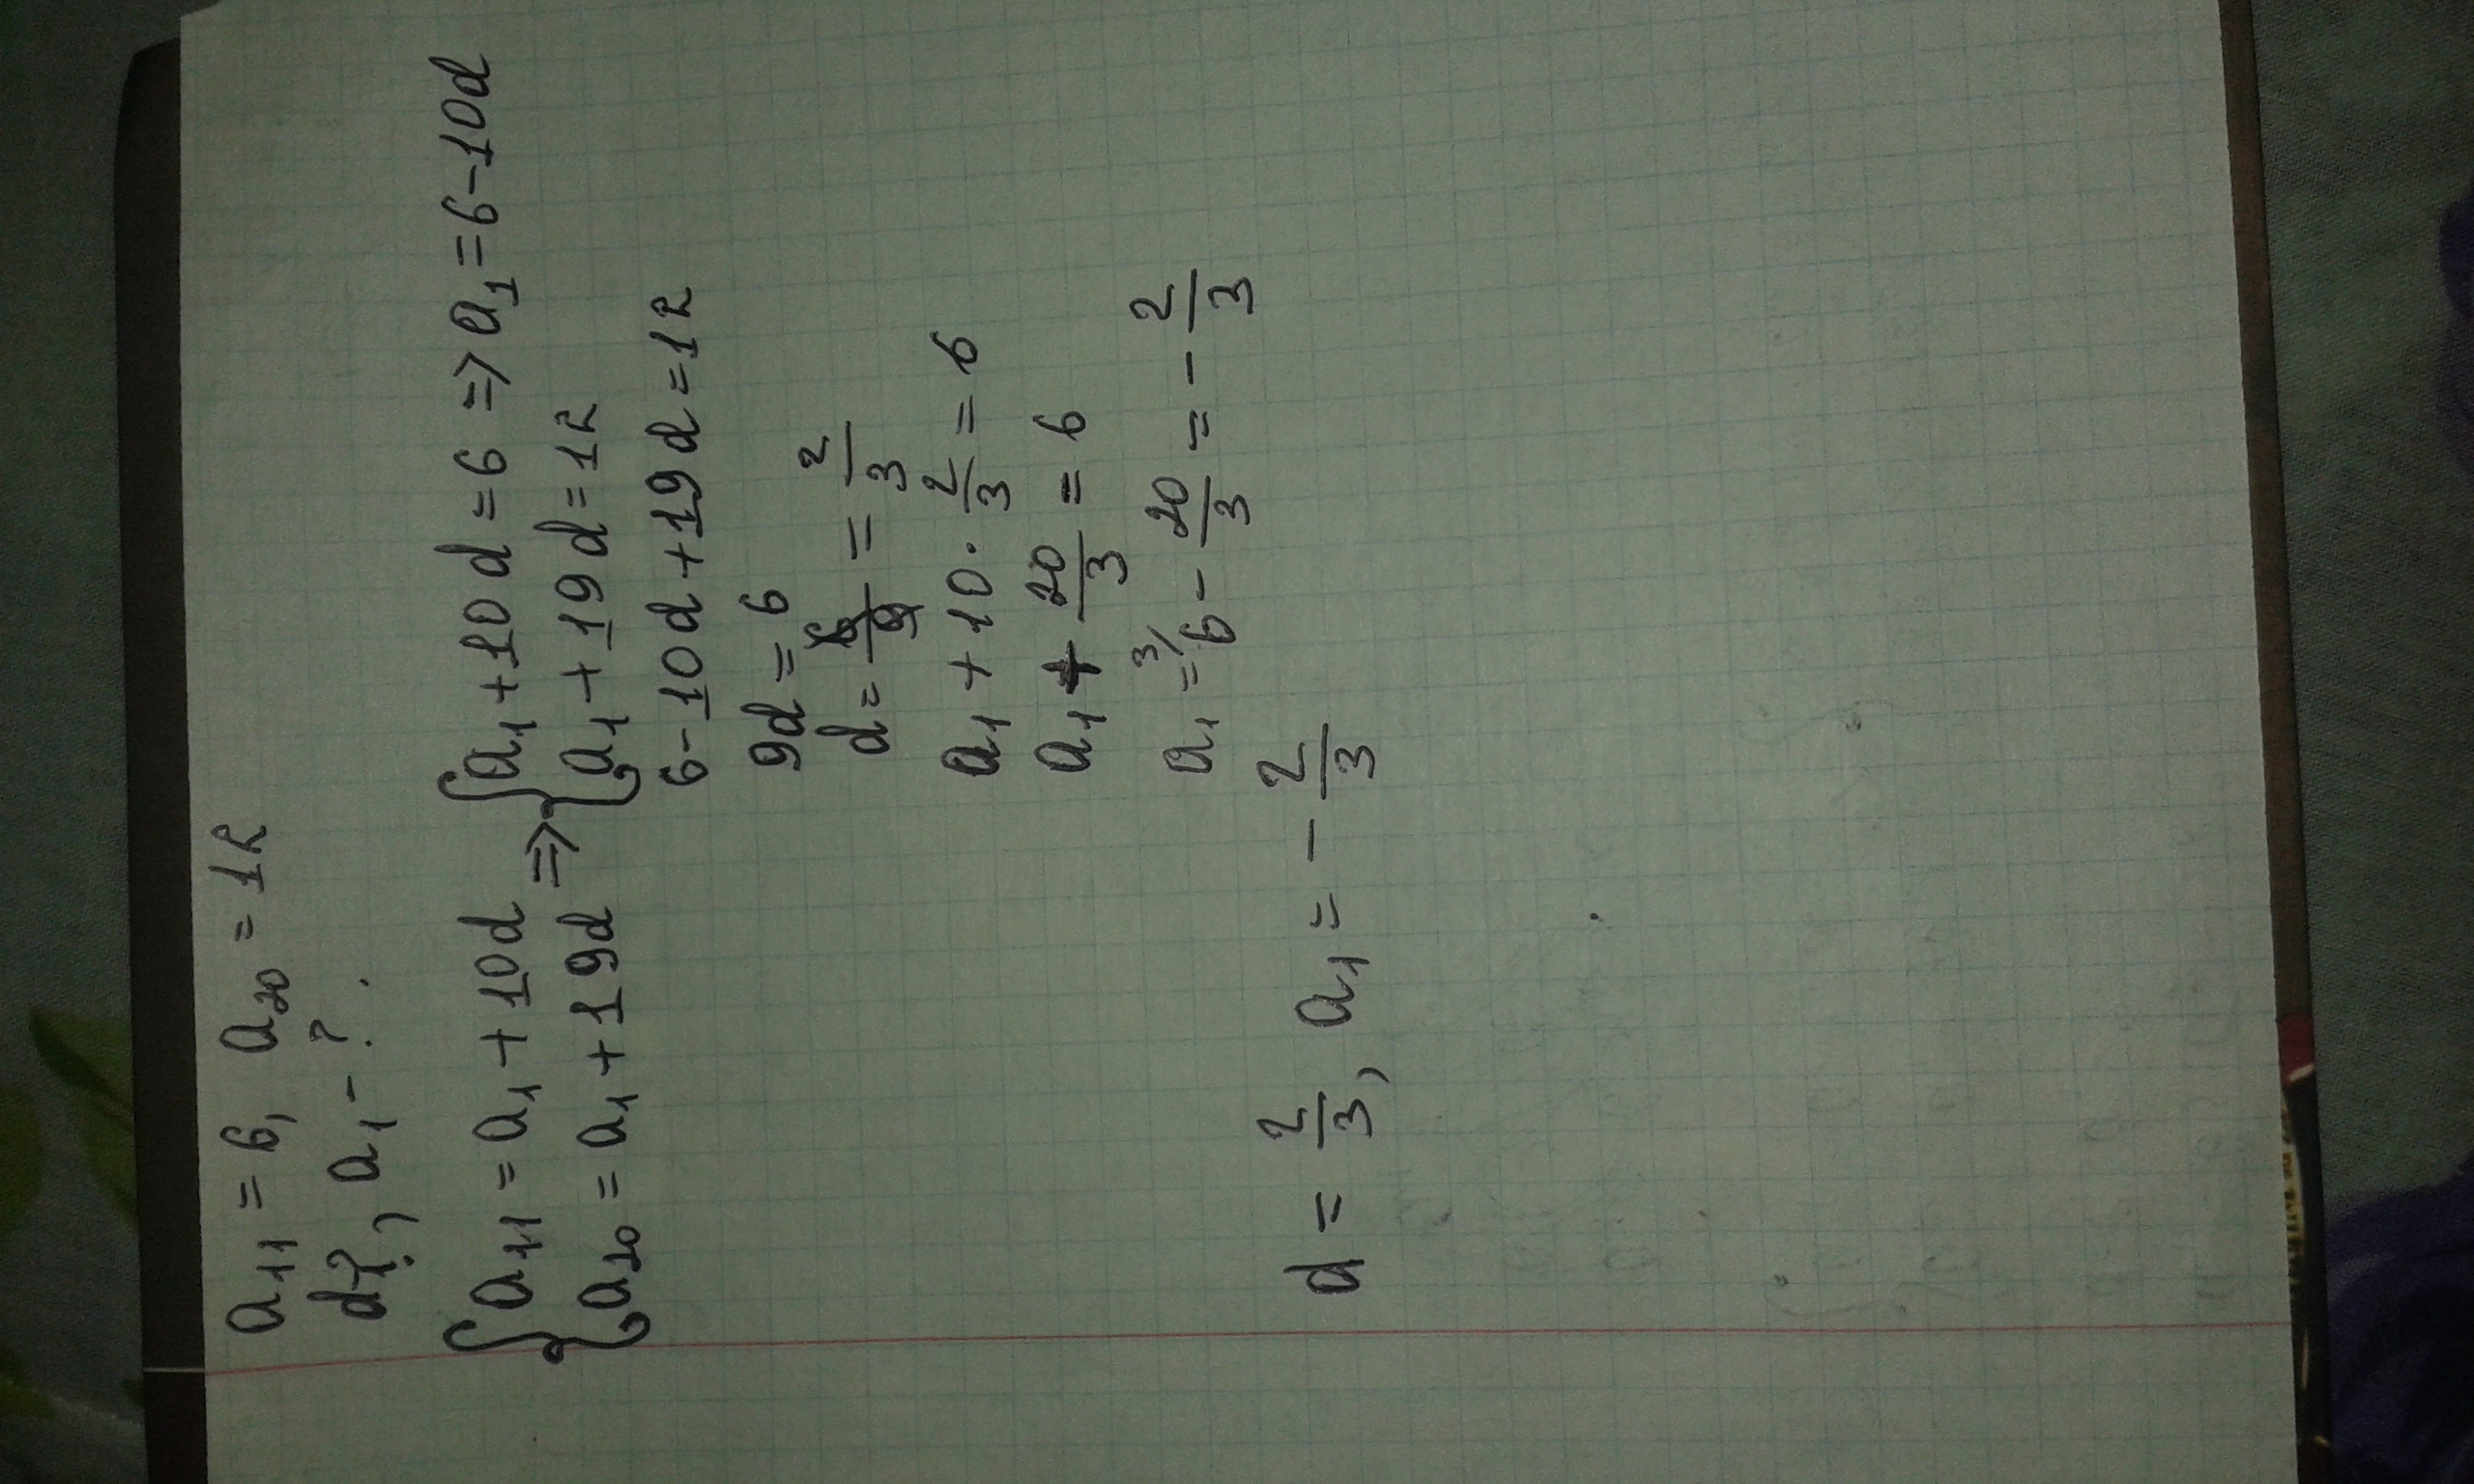 a₁₁ = 6, a₂₀ = 12
d-?, a₁ - ?.
{a₁₁ = a₁ + 10d => {a₁ + 10d = 6 => a₁ = 6 - 10d
{a₂₀ = a₁ + 19d {a₁ + 19d = 12
6 - 10d + 19d = 12
9d = 6
d = 6/9 = 2/3
a₁ + 10 · 2/3 = 6
a₁ + 20/3 = 6
a₁ = ³⁄6 - 20/3 = - 2/3
d = 2/3, a₁ = - 2/3